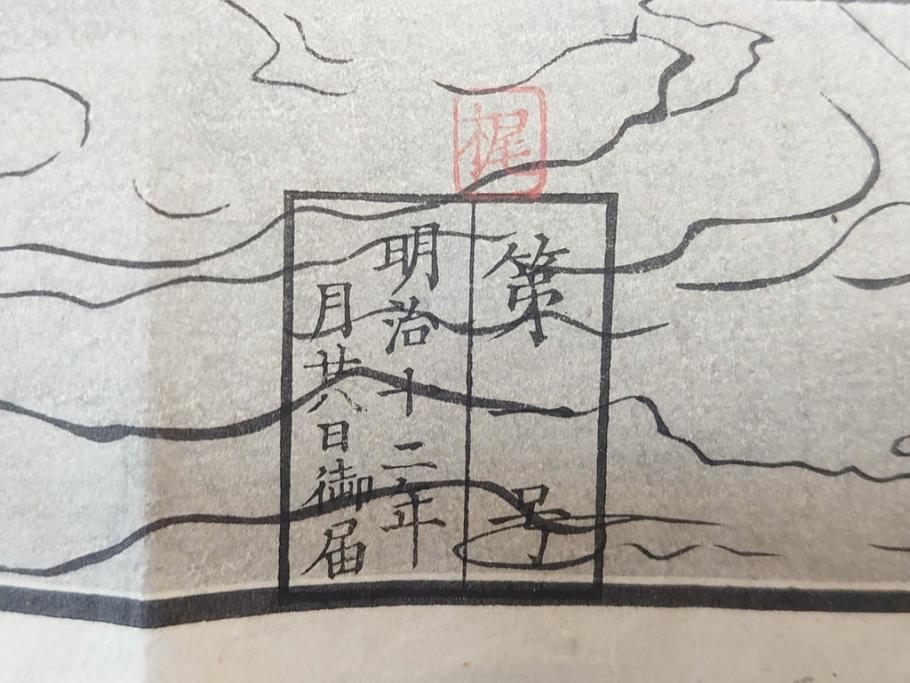 梶
第 号
明治十二年
月廿八日御届